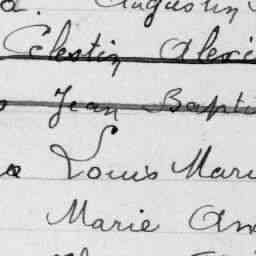 a. Augustin
Celestin Alexi
Jean Bapti
Louis Mari
Marie An